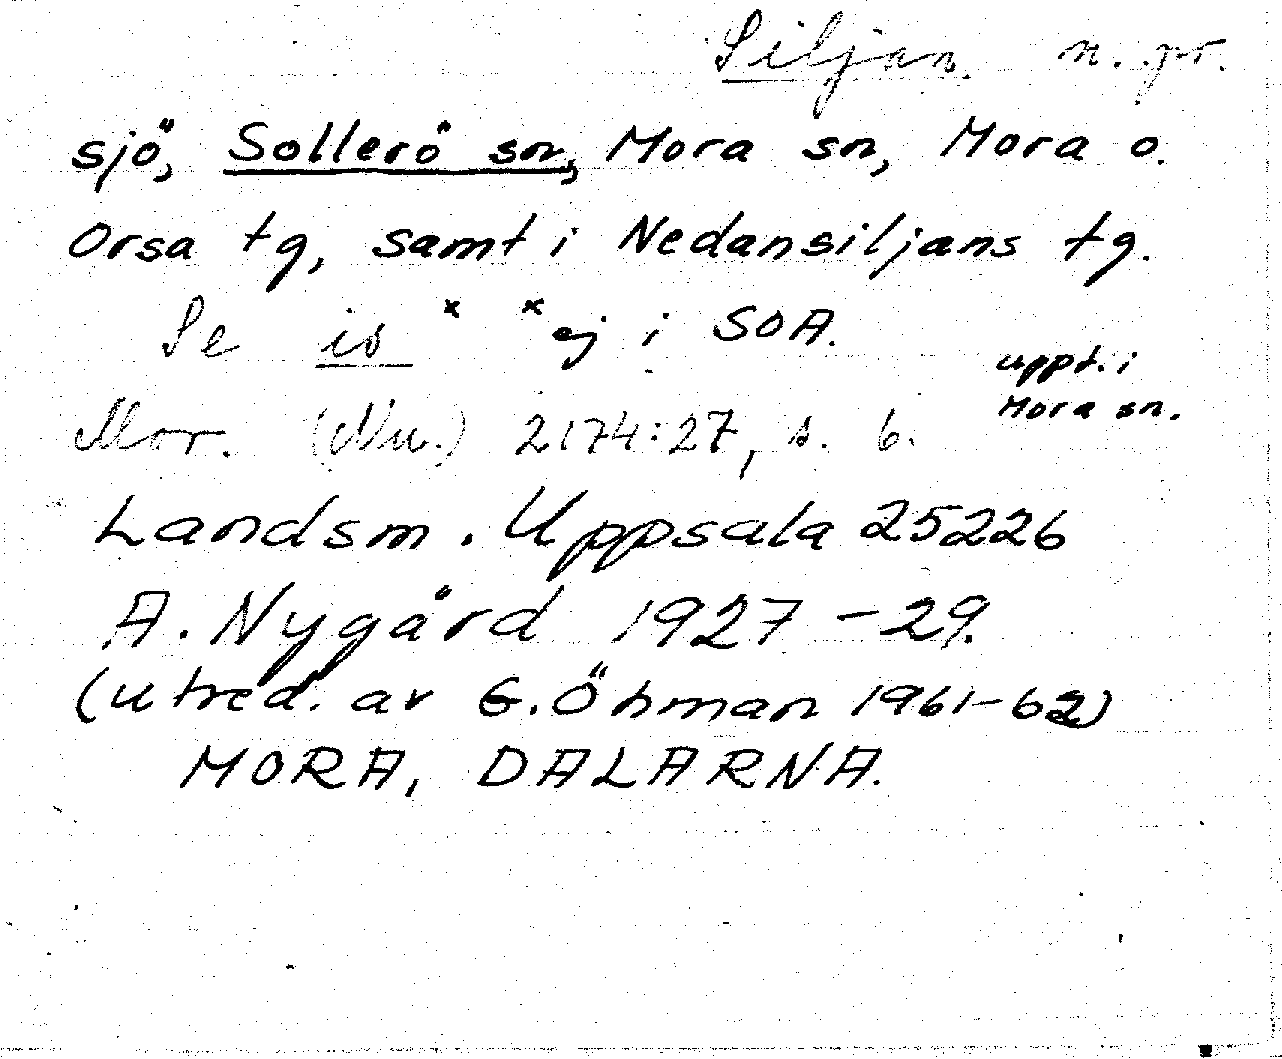 Siljan. n. pr.
sjö, Sollerö sn, Mora sn, Mora o.
Orsa tg, samt i Nedansiljans tg.
Se is x x ej i SOA.
uppt. i
Mora sn.
Mor. (Nu.) 2174:27, s. 6.
Landsm. Uppsala 25226
A. Nygård 1927-29.
(utred. av G. Öhman 1961-62)
MORA, DALARNA.